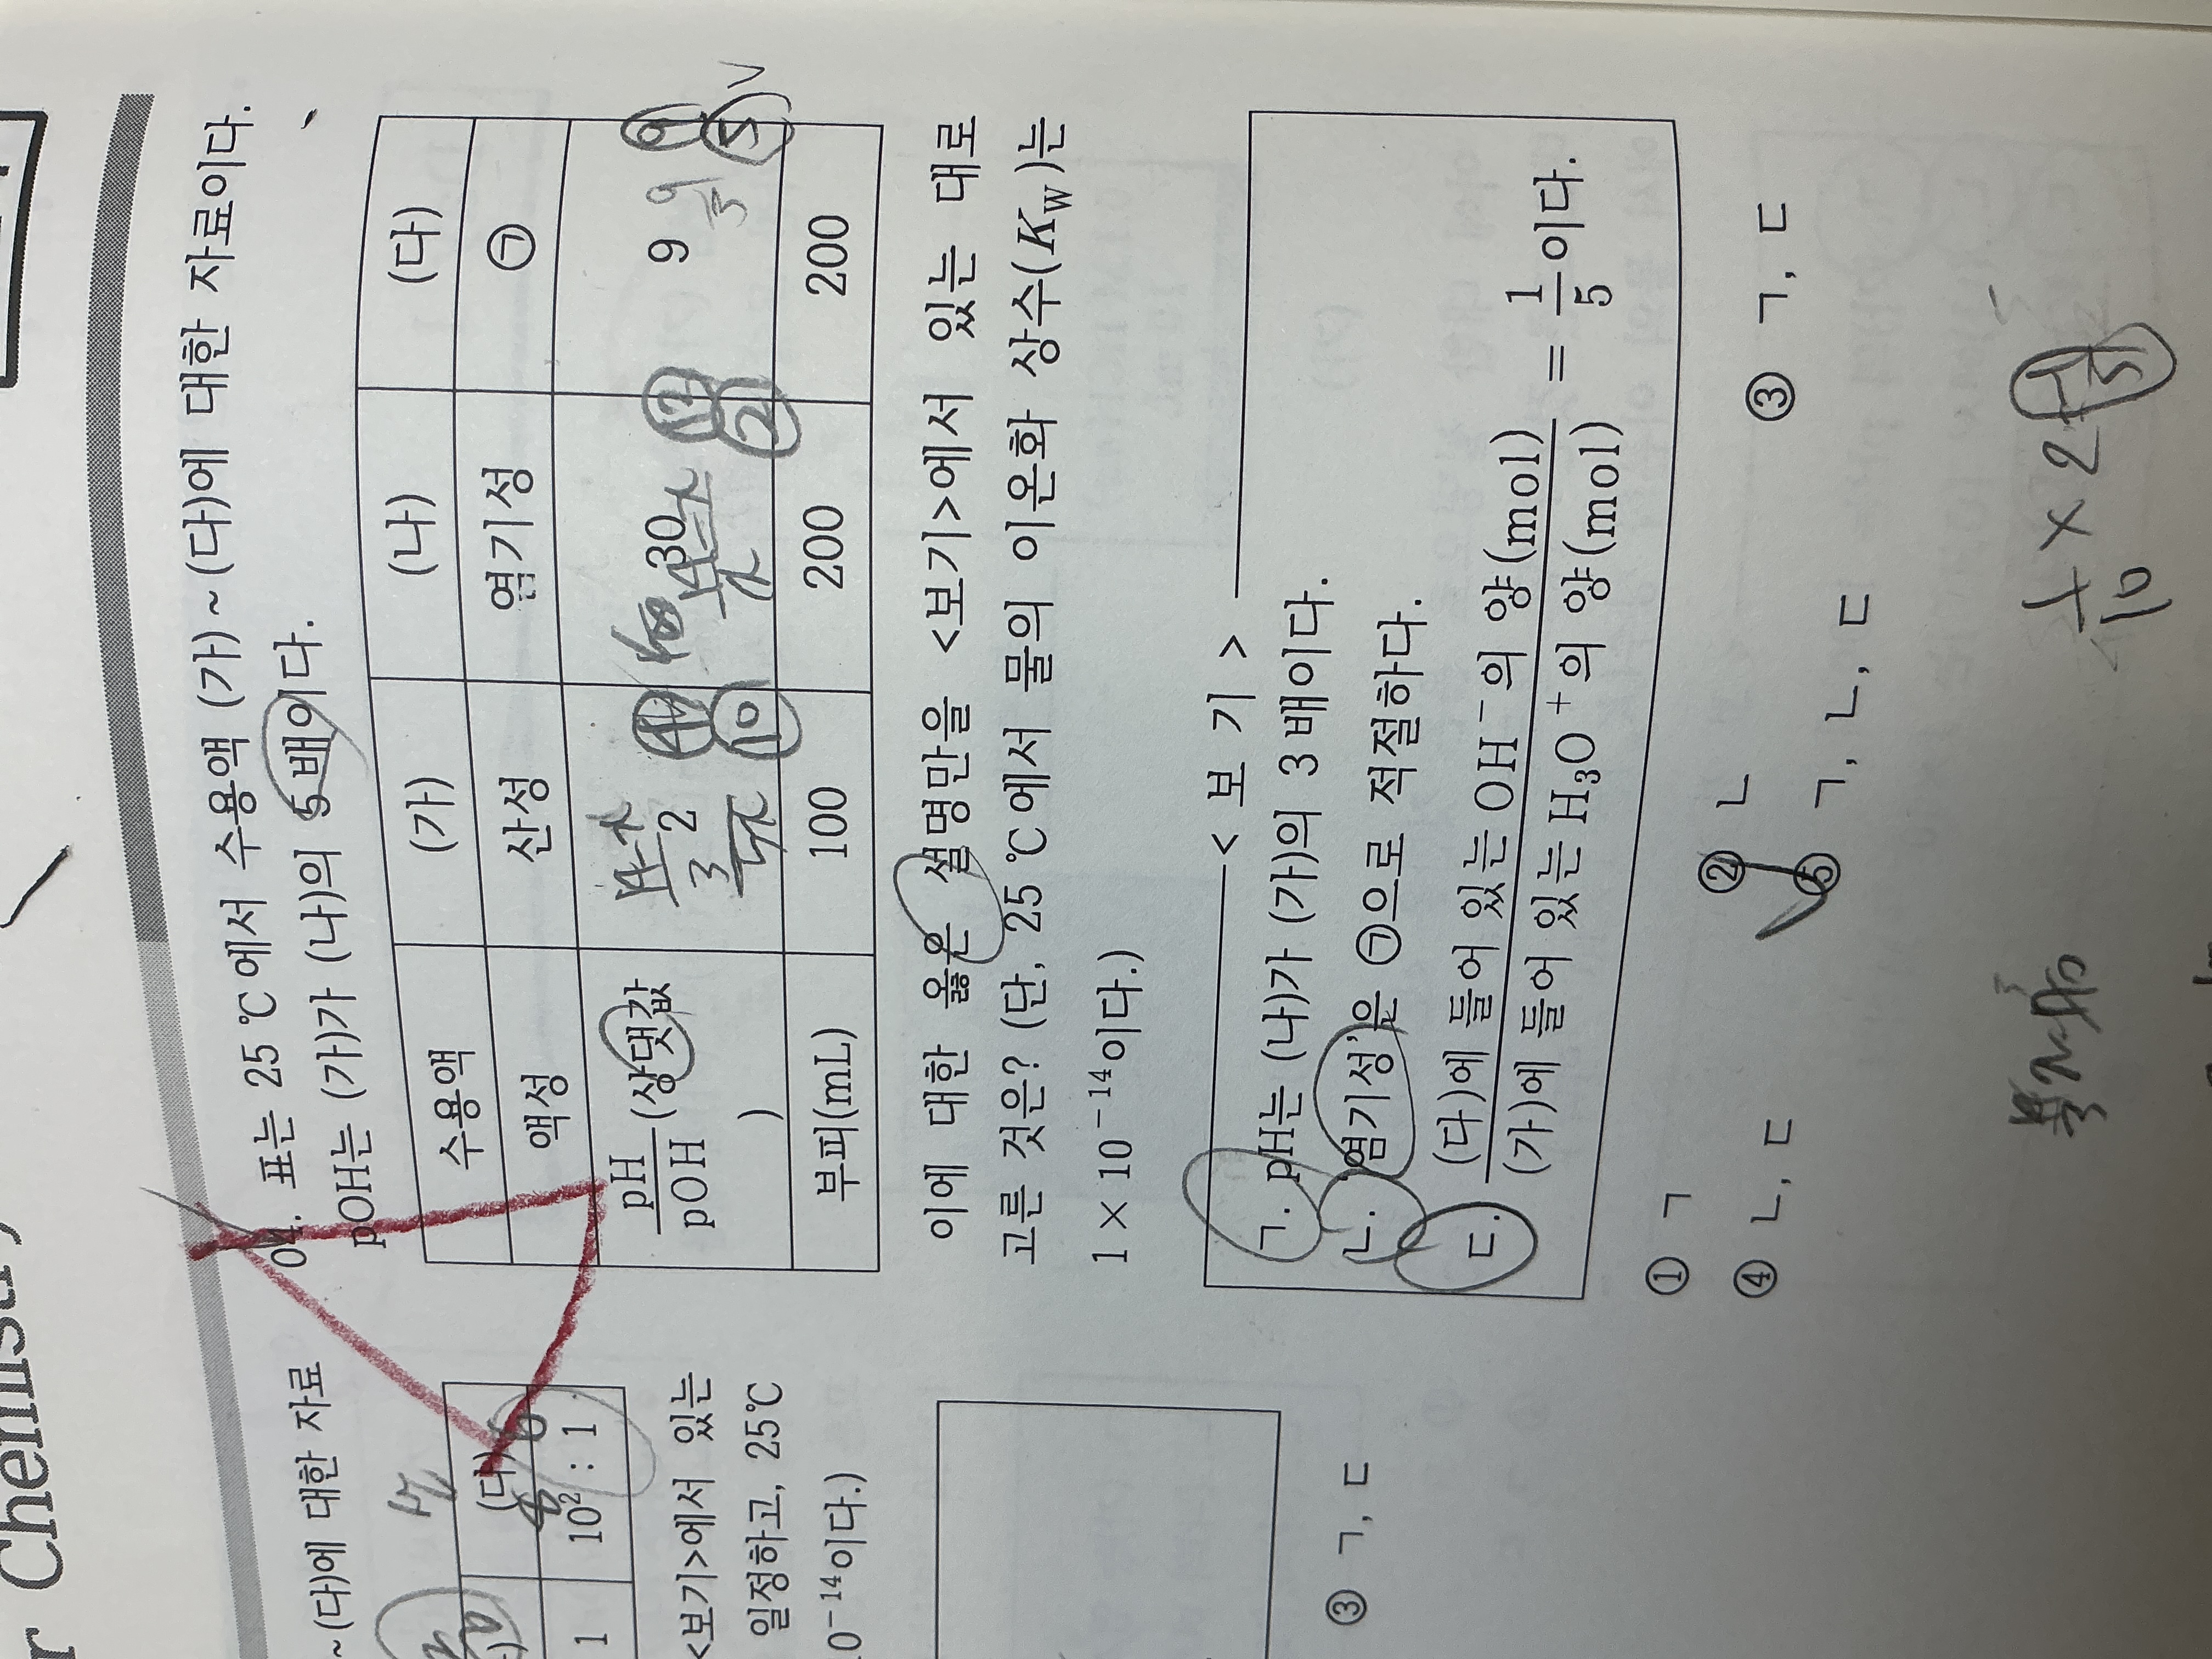 04. 표는 25 ℃에서 수용액 (가)~(다)에 대한 자료이다.
pOH는 (가)가 (나)의 5배이다.
수용액 (가) (나) (다)
액성 산성 염기성 ㉠
pH/pOH (상댓값) 2 30 9
부피(mL) 100 200 200
4 10
12 2
9 5
이에 대한 옳은 설명만을 <보기>에서 있는 대로
고른 것은? (단, 25 ℃에서 물의 이온화 상수(K_W)는
1×10⁻¹⁴이다.)
< 보 기 >
ㄱ. pH는 (나)가 (가)의 3배이다.
ㄴ. '염기성'은 ㉠으로 적절하다.
ㄷ. (다)에 들어 있는 OH⁻의 양(mol) / (가)에 들어 있는 H₃O⁺의 양(mol) = 1/5이다.
① ㄱ ② ㄴ ③ ㄱ, ㄷ
④ ㄴ, ㄷ ⑤ ㄱ, ㄴ, ㄷ
1/10 × 2 1/5
~(다)에 대한 자료
(다)
1 10² : 1
<보기>에서 있는
일정하고, 25℃
0⁻¹⁴이다.)
③ ㄱ, ㄷ